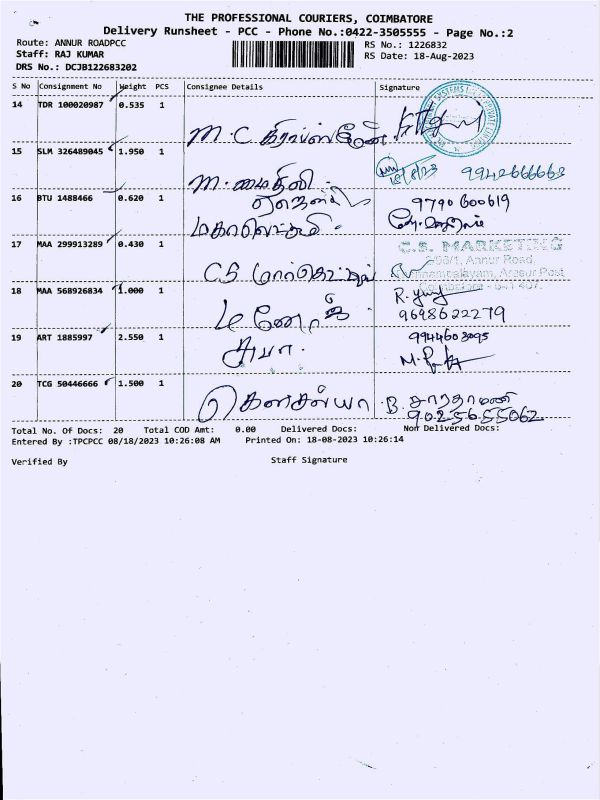 THE PROFESSIONAL COURIERS, COIMBATORE
Delivery Runsheet - PCC - Phone No.:0422-3505555 - Page No.:2
Route: ANNUR ROADPCC
RS No.: 1226832
Staff: RAJ KUMAR
RS Date: 18-Aug-2023
DRS No.: DCJB122683202
S No Consignment No Weight PCS Consignee Details Signature
14 TDR 100020987 0.535 1
M.C.
15 SLM 326489045 1.950 1
M. மைதிலி 9942666663
16 BTU 1488466 0.620 1
ஏஜென்சி 9790600619
மகாலெட்சுமி
17 MAA 299913289 0.430 1
C.S. MARKETING
2/98/1, Annur Road,
Arasur Post
Coimbatore - 641 407.
CS மார்கெட்டிங்
18 MAA 568926834 1.000 1
மனோஜ் 9698622279
19 ART 1885997 2.550 1
சுபா. 9944603095
20 TCG 50446666 1.500 1
கௌசல்யா B. சாரதாமணி
9025655062
Total No. Of Docs: 20 Total COD Amt: 0.00 Delivered Docs: Non Delivered Docs:
Entered By :TPCPCC 08/18/2023 10:26:08 AM Printed On: 18-08-2023 10:26:14
Verified By Staff Signature